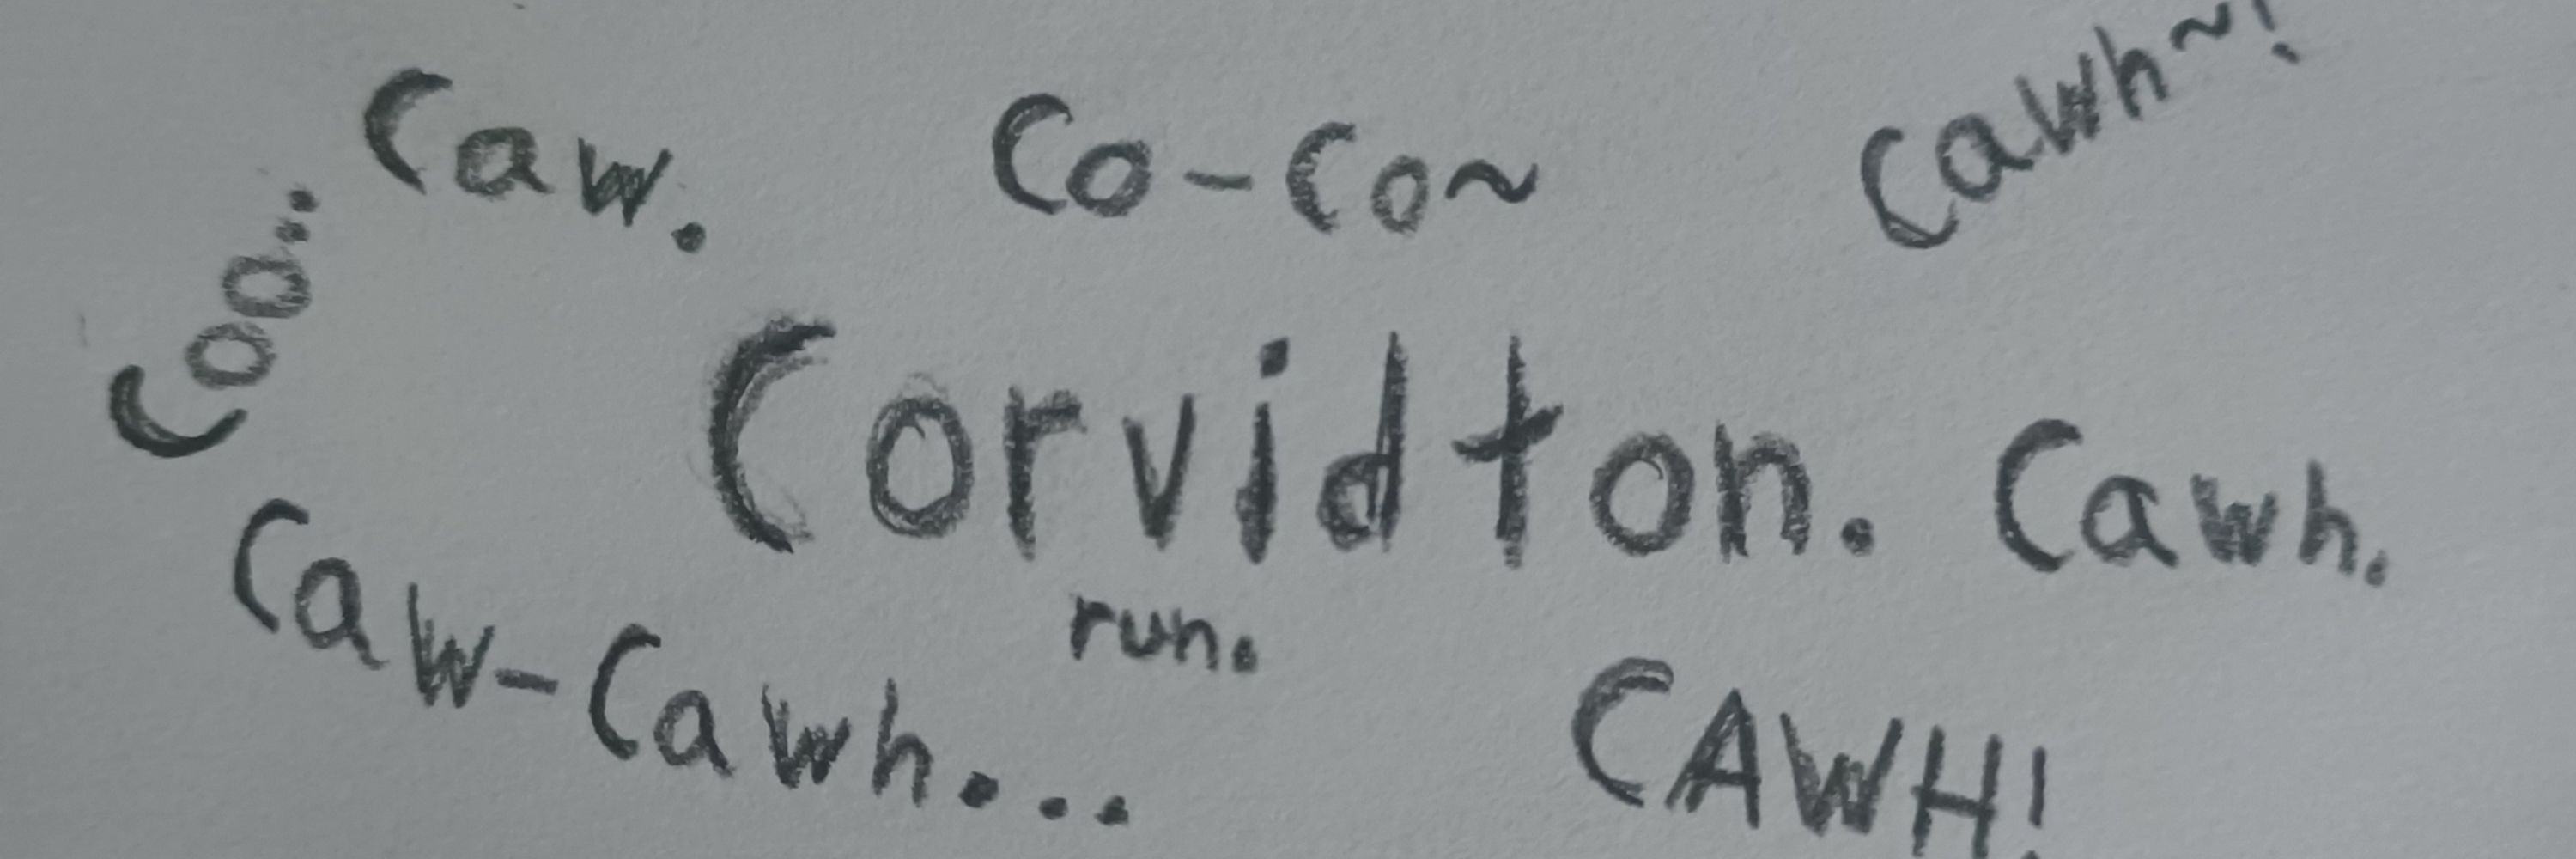 Caw.
Co-Co~
Cawh~!
Coo...
Corvidton.
Cawh.
Caw-Cawh...
run.
CAWH!